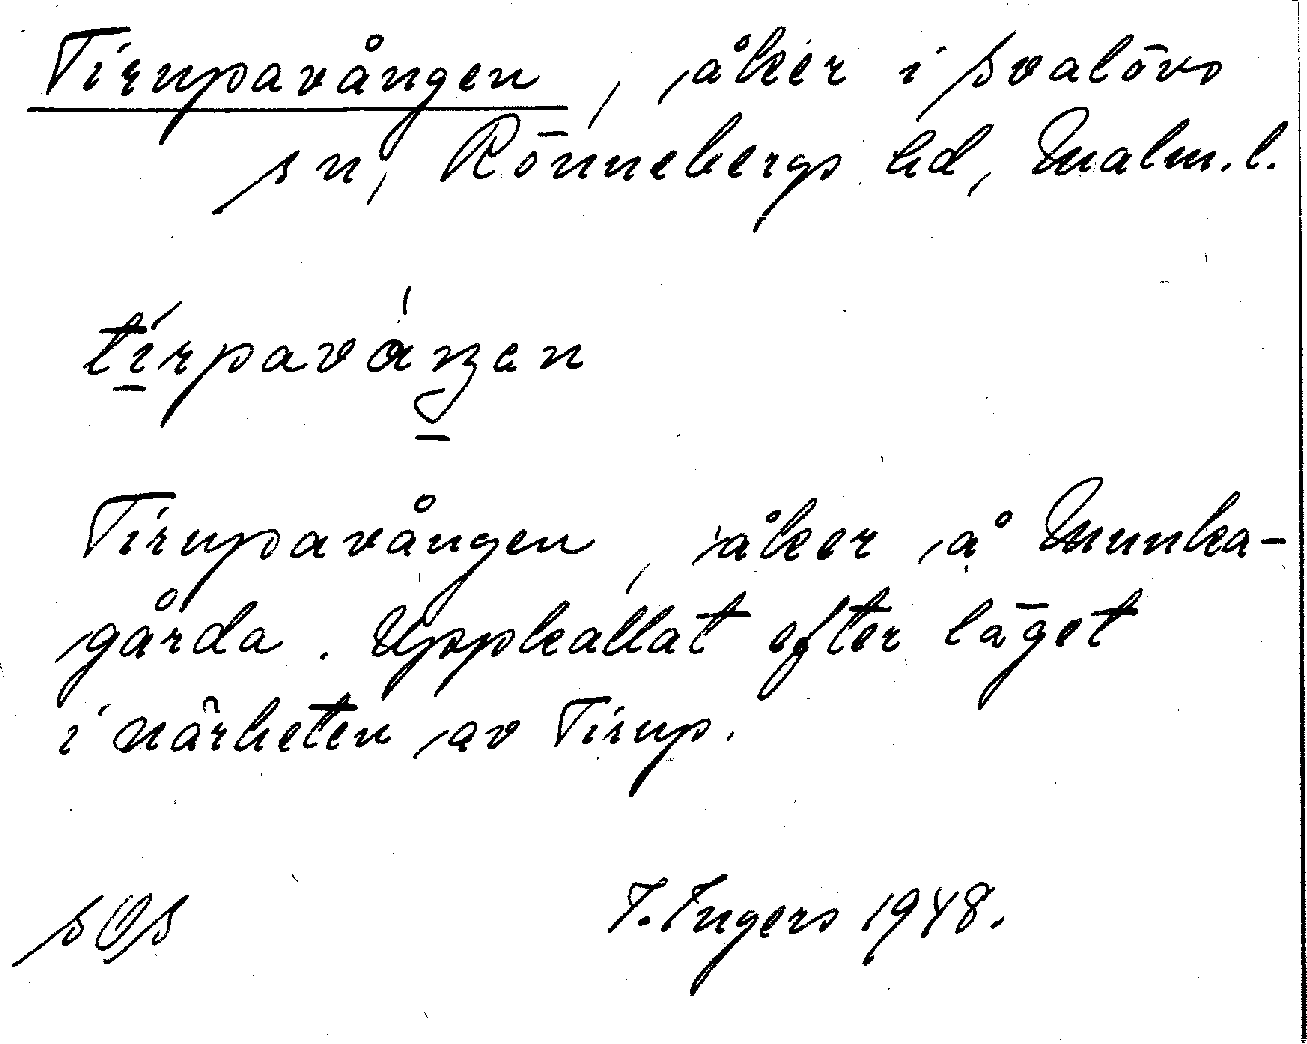 Tirupavången, åker i Svalövs
sn, Rönnebergs hd, Malm.l.
tírpaváŋen
Tirupavången, åker å Munka-
gårda. Uppkallat efter läget
i närheten av Tirup.
SOS
I. Ingers 1948.